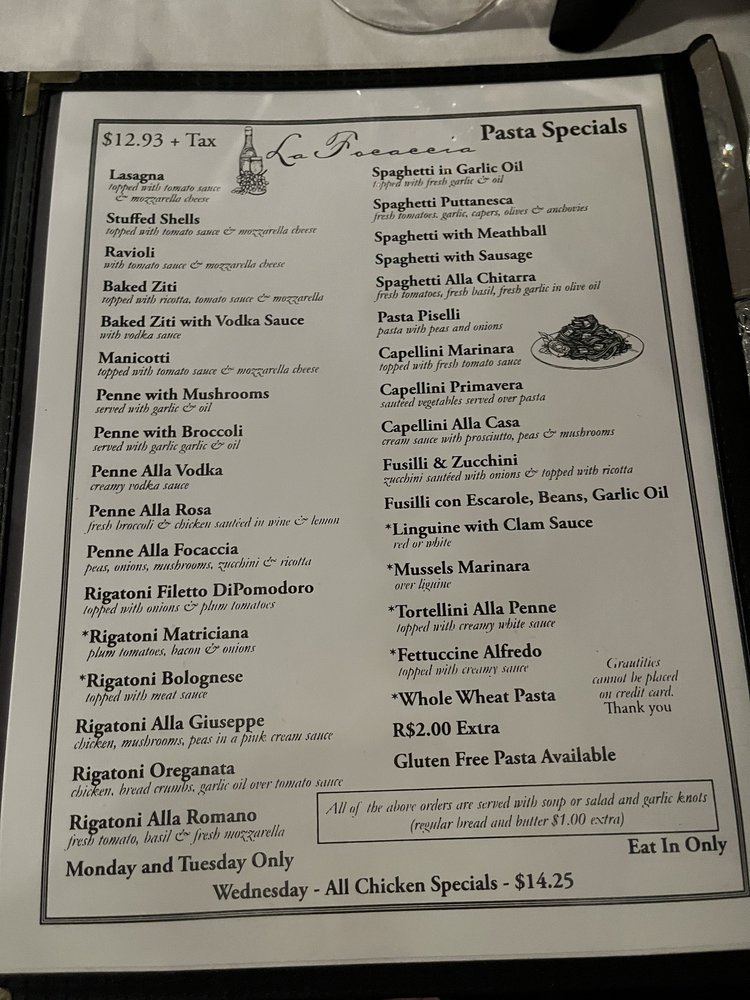 $12.93 + Tax
La Focaccia
Pasta Specials
Lasagna
topped with tomato sauce
& mozzarella cheese
Stuffed Shells
topped with tomato sauce & mozzarella cheese
Ravioli
with tomato sauce & mozzarella cheese
Baked Ziti
topped with ricotta, tomato sauce & mozzarella
Baked Ziti with Vodka Sauce
with vodka sauce
Manicotti
topped with tomato sauce & mozzarella cheese
Penne with Mushrooms
served with garlic & oil
Penne with Broccoli
served with garlic garlic & oil
Penne Alla Vodka
creamy vodka sauce
Penne Alla Rosa
fresh broccoli & chicken sautéed in wine & lemon
Penne Alla Focaccia
peas, onions, mushrooms, zucchini & ricotta
Rigatoni Filetto DiPomodoro
topped with onions & plum tomatoes
*Rigatoni Matriciana
plum tomatoes, bacon & onions
*Rigatoni Bolognese
topped with meat sauce
Rigatoni Alla Giuseppe
chicken, mushrooms, peas in a pink cream sauce
Rigatoni Oreganata
chicken, bread crumbs, garlic oil over tomato sauce
Rigatoni Alla Romano
fresh tomato, basil & fresh mozzarella
Monday and Tuesday Only
Spaghetti in Garlic Oil
topped with fresh garlic & oil
Spaghetti Puttanesca
fresh tomatoes, garlic, capers, olives & anchovies
Spaghetti with Meathball
Spaghetti with Sausage
Spaghetti Alla Chitarra
fresh tomatoes, fresh basil, fresh garlic in olive oil
Pasta Piselli
pasta with peas and onions
Capellini Marinara
topped with fresh tomato sauce
Capellini Primavera
sautéed vegetables served over pasta
Capellini Alla Casa
cream sauce with prosciutto, peas & mushrooms
Fusilli & Zucchini
zucchini sautéed with onions & topped with ricotta
Fusilli con Escarole, Beans, Garlic Oil
*Linguine with Clam Sauce
red or white
*Mussels Marinara
over liguine
*Tortellini Alla Penne
topped with creamy white sauce
*Fettuccine Alfredo
topped with creamy sauce
*Whole Wheat Pasta
R$2.00 Extra
Gluten Free Pasta Available
Grautities
cannot be placed
on credit card.
Thank you
All of the above orders are served with soup or salad and garlic knots
(regular bread and butter $1.00 extra)
Eat In Only
Wednesday - All Chicken Specials - $14.25